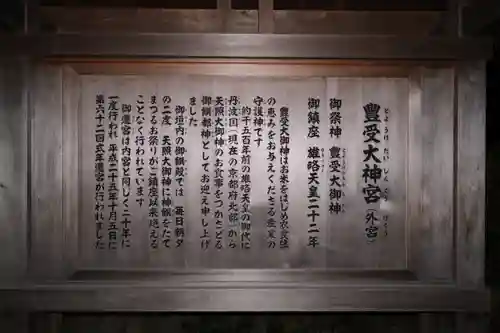 豊受大神宮(外宮)
とようけ だいじんぐう げくう
御祭神 豊受大御神
とようけのおおみかみ
御鎮座 雄略天皇二十二年
豊受大御神はお米をはじめ衣食住
の恵みをお与えくださる産業の
守護神です
約千五百年前の雄略天皇の御代に
丹波国(現在の京都府北部)から
天照大御神のお食事をつかさどる
御饌都神としてお迎え申し上げ
ました
御垣内の御饌殿では 毎日朝夕
の二度 天照大御神に神饌をたて
まつるお祭りがご鎮座以来絶える
ことなく行われています
御遷宮は内宮と同じく二十年に
一度行われ 平成二十五年十月五日に
第六十二回式年遷宮が行われました